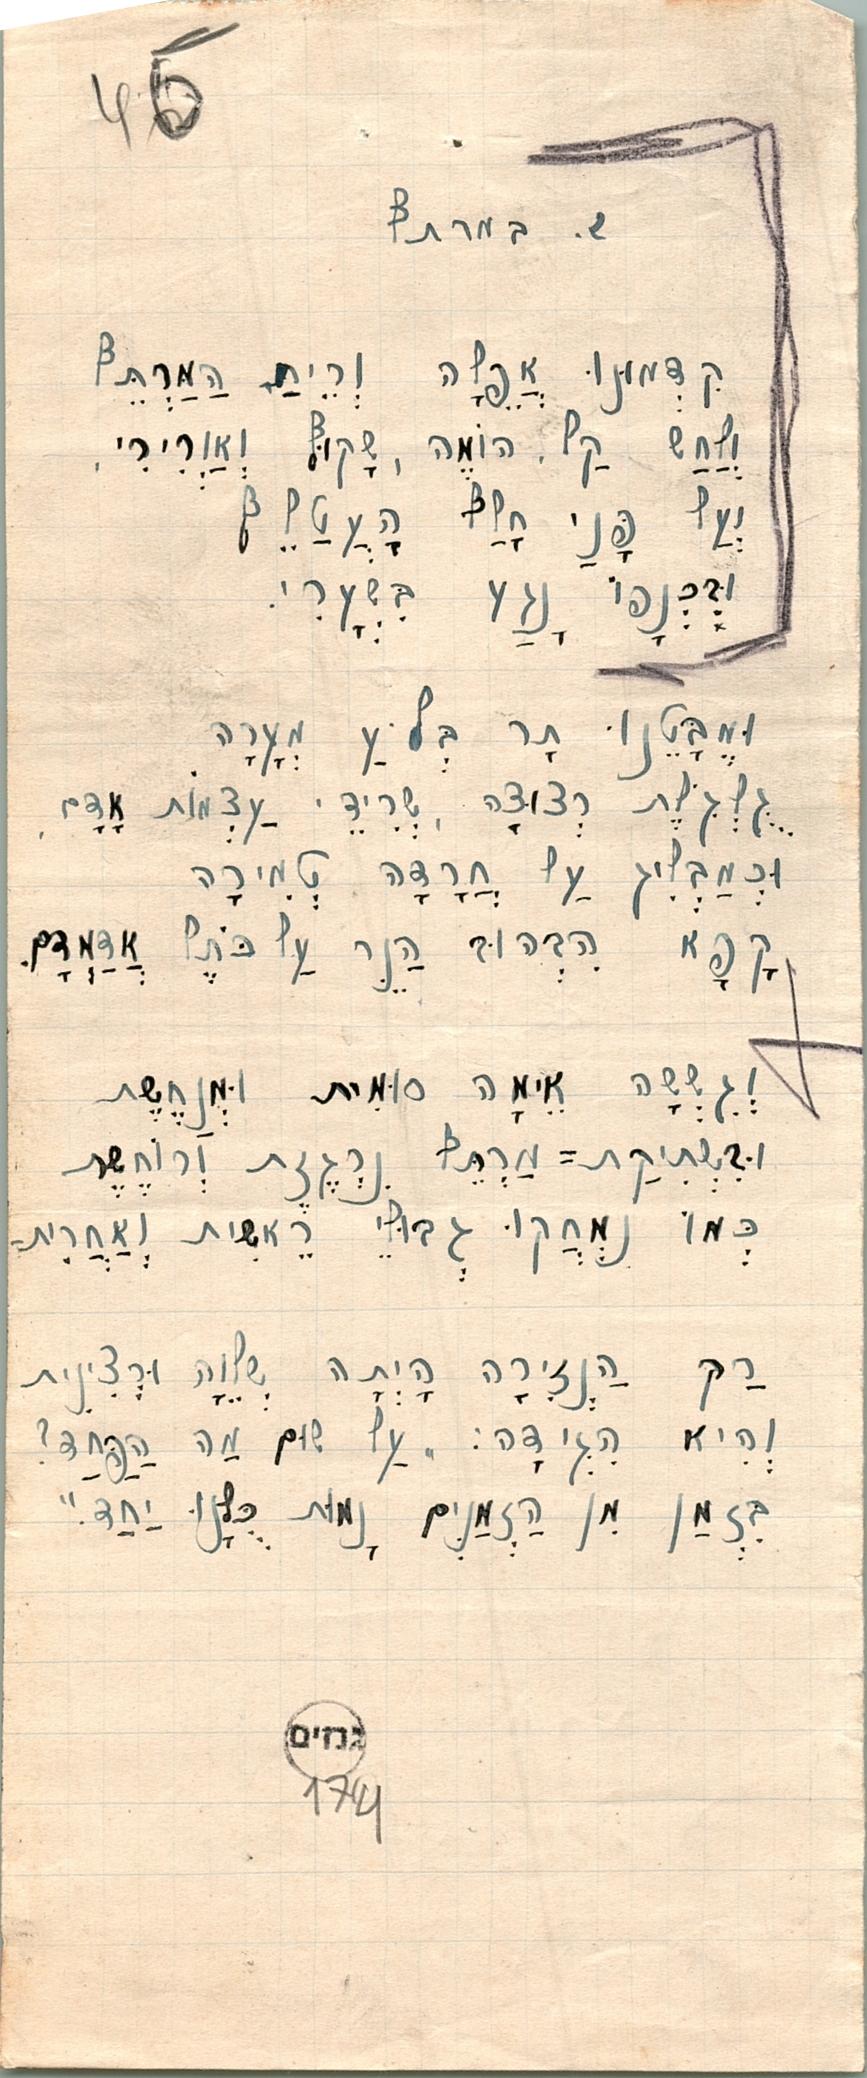 45
ש. במרתף
קִדְּמוּנוּ אֲפֵלָה וְרֵיחַ הַמַּרְתֵּף
וְלַחַשׁ קַל, הוֹמֶה, שָׁקוּף וַאֲוְרִירִי,
וְעַל פָּנַי חָלַף הָעֲטַלֵּף
וּבִכְנָפוֹ נָגַע בִּשְׂעָרִי.
וּמַבָּטֵנוּ תָּר בְּלֹעַ מְעָרָה
גֻּלְגֹּלֶת רְצוּצָה, שְׂרִידֵי עַצְמוֹת אָדָם,
וּכְמַבְלִיג עַל חֲרָדָה טְמִירָה
קָפָא הִבְהוּב הַנֵּר עַל כֹּתֶל אֲדַמְדָּם.
וְגִשְּׁשָׁה אֵימָה סוּמִית וּמְנַחֶשֶׁת
וּבִשְׁתִיקַת=מַרְתֵּף נִרְגֶּזֶת וְרוֹחֶשֶׁת
כְּמוֹ נִמְחֲקוּ גְּבוּלֵי רֵאשִׁית וְאַחֲרִית=
רַק הַנְּזִירָה הָיְתָה שְׁלֵוָה וּרְצִינִית
וְהִיא הִגִּידָה: "עַל שׁוּם מַה הַפַּחַד?
בִּזְמַן מִן הַזְּמַנִּים נָמוּת כֻּלָּנוּ יַחַד."
גנזים